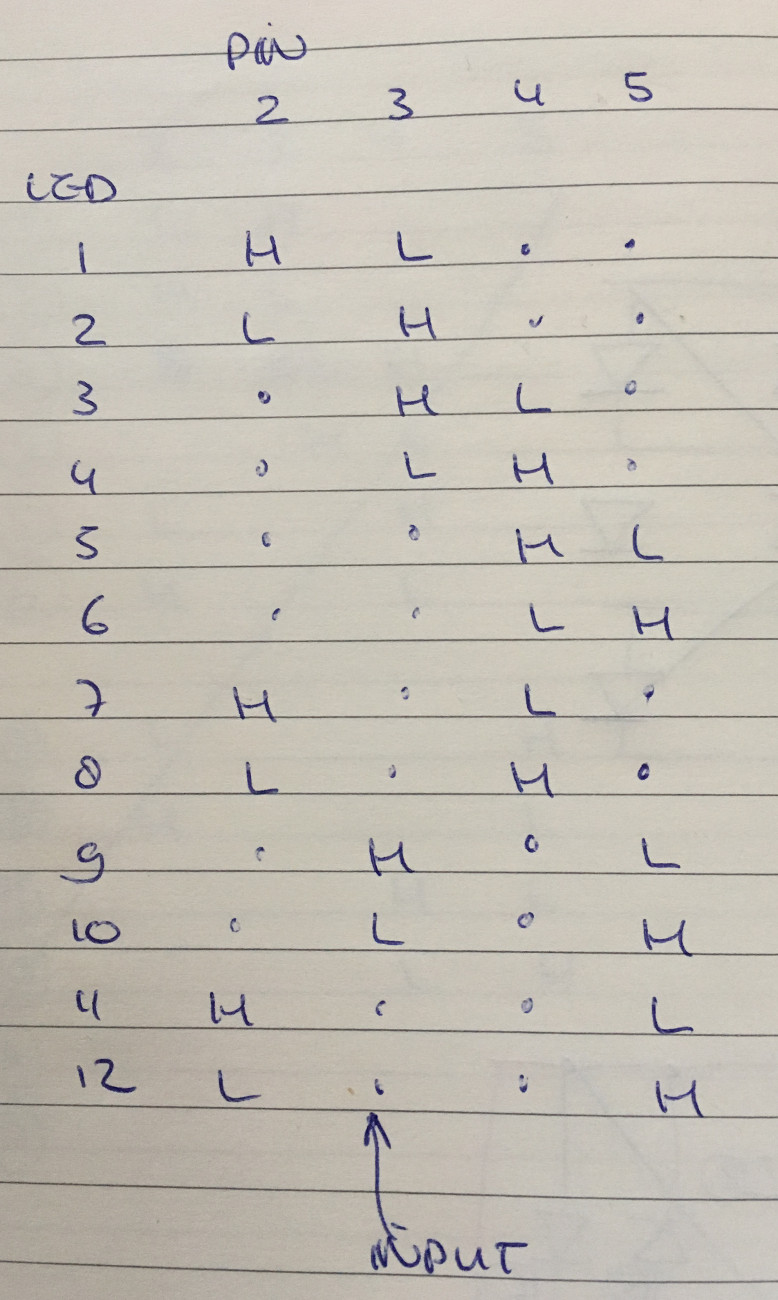 PIN
2 3 4 5
LED
1 H L . .
2 L H . .
3 . H L .
4 . L H .
5 . . H L
6 . . L H
7 H . L .
8 L . H .
9 . H . L
10 . L . H
11 H . . L
12 L . . H
INPUT